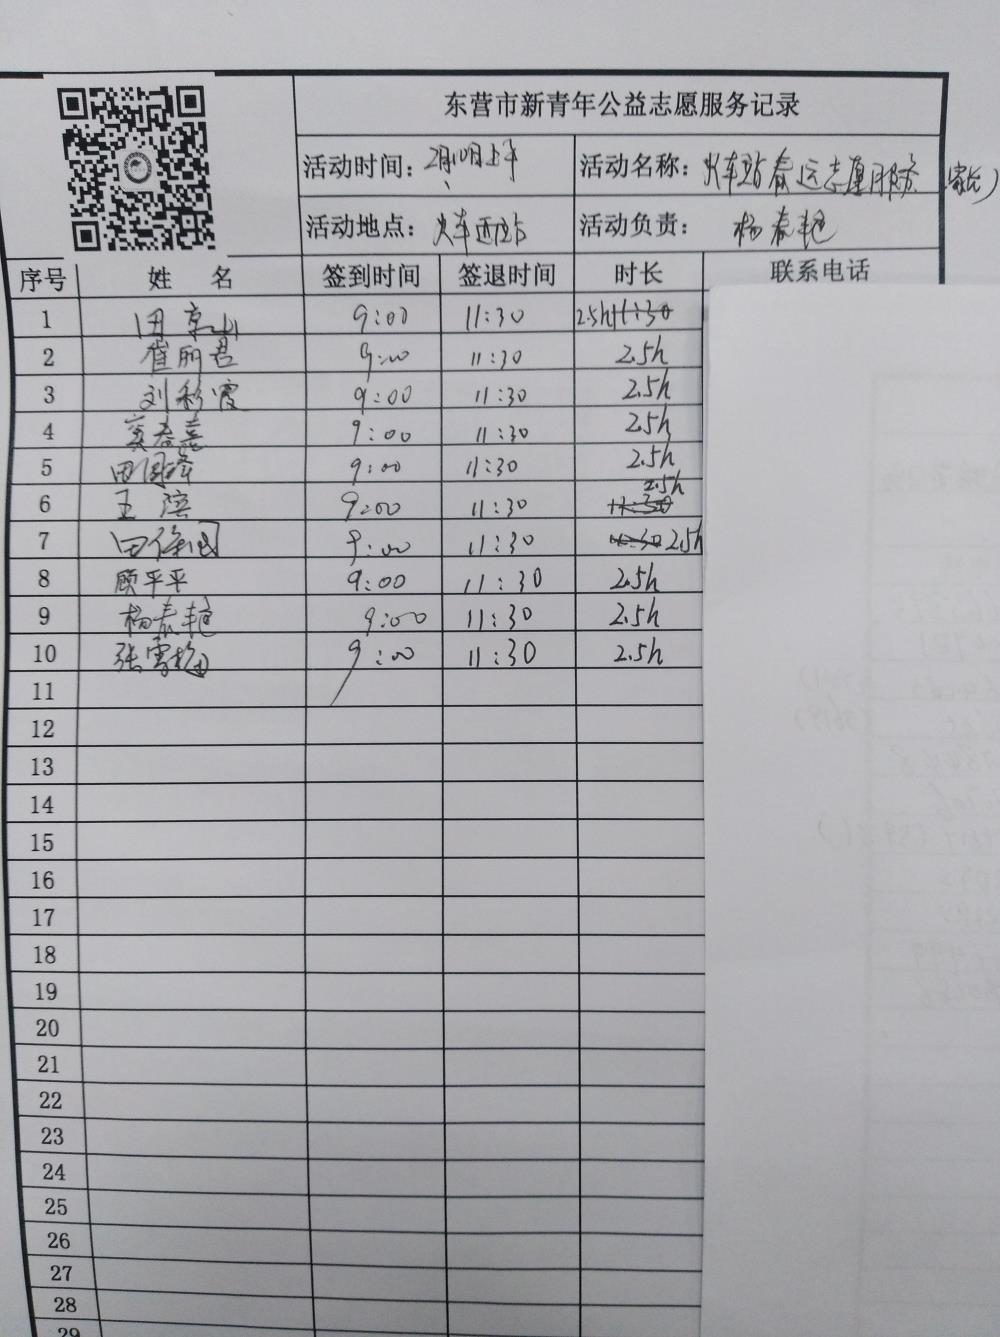 东营市新青年公益志愿服务记录
活动时间: 2月10日上午 活动名称: 火车站春运志愿服务 (家长)
活动地点: 火车西站 活动负责: 杨春艳
序号 姓名 签到时间 签退时间 时长 联系电话
1 田京山 9:00 11:30 2.5h
2 崔丽君 9:00 11:30 2.5h
3 刘彩霞 9:00 11:30 2.5h
4 9:00 11:30 2.5h
5 9:00 11:30 2.5h
6 王滨 9:00 11:30 2.5h
7 9:00 11:30 2.5h
8 顾平平 9:00 11:30 2.5h
9 杨春艳 9:00 11:30 2.5h
10 张雪梅 9:00 11:30 2.5h
11
12
13
14
15
16
17
18
19
20
21
22
23
24
25
26
27
28
29